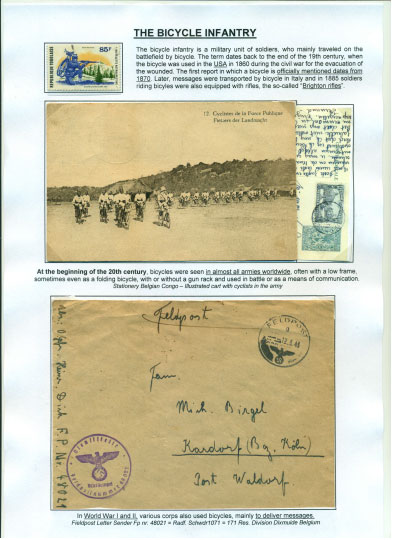 THE BICYCLE INFANTRY
85F
REPUBLIQUE TOGOLAISE
The bicycle infantry is a military unit of soldiers, who mainly traveled on the
battlefield by bicycle. The term dates back to the end of the 19th century, when
the bicycle was used in the USA in 1860 during the civil war for the evacuation of
the wounded. The first report in which a bicycle is officially mentioned dates from
1870. Later, messages were transported by bicycle in Italy and in 1885 soldiers
riding bicyles were also equipped with rifles, the so-called "Brighton rifles".
12. Cyclistes de la Force Publique
Fietsers der Landmacht
At the beginning of the 20th century, bicycles were seen in almost all armies worldwide, often with a low frame,
sometimes even as a folding bicycle, with or without a gun rack and used in battle or as a means of communication.
Stationery Belgian Congo – Illustrated cart with cyclists in the army
Feldpost
FELDPOST
Mich. Birgel
Kardorf (Bz. Köln)
Post Waldorf
In World War I and II, various corps also used bicycles, mainly to deliver messages.
Fieldpost Letter Sender Fp nr. 48021 = Radf. Schwdr1071 = 171 Res. Division Dixmuide Belgium